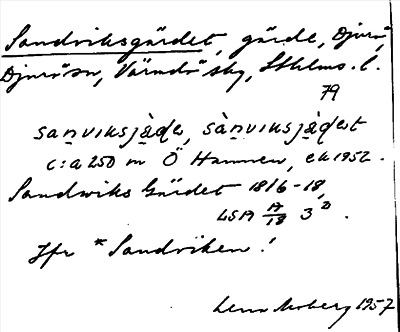 Sandviksgärdet, gärde, Djurö,
Djurö sn, Värmdö skg, Sthlms. l.
79
sanviksjàɖe, sànviksjàɖet
c:a 250 m Ö Hamnen, ek 1952.
Sandwiks Gärdet 1816-18,
LSA A/18 3²).
Jfr *Sandviken!
Lena Moberg 1957